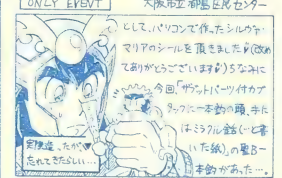 ONLY EVENT
大阪市立都島区民センター
として、パソコンで作ったシルクァ・
マリアのシールを頂きました(改め
てありがとうございます)ちなみに
今回、"ザケットパーツ付カプ
タック"に一本釣の頭、手に
はミラクル銛(…と書
いた紙)の聖B一
本釣があった…。
忘れて下さい…